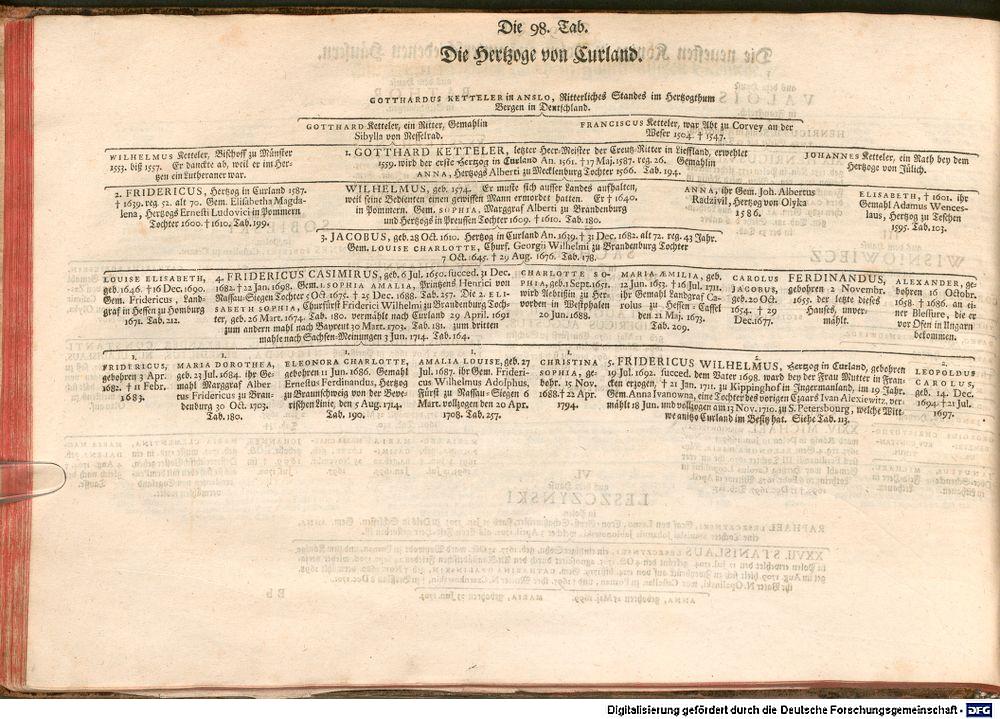 Die 98. Tab.
Die Hertzoge von Curland.
GOTTHARDUS KETTELER in ANSLO, Ritterliches Standes im Hertzogthum
Bergen in Deutschland.
GOTTHARD Ketteler, ein Ritter, Gemahlin
Sibylla von Nesselrad.
FRANCISCUS Ketteler, war Abt zu Corvey an der
Weser 1504. † 1547.
WILHELMUS Ketteler, Bischoff zu Münster
1553. biß 1557. Er danckte ab, weil er im Her-
tzen ein Lutheraner war.
1. GOTTHARD KETTELER, letzter Heer-Meister der Creutz-Ritter in Lieffland, erwehlet
1559. wird der erste Hertzog in Curland An. 1561. † 17 Maj. 1587. reg. 26. Gemahlin
ANNA, Hertzogs Alberti zu Mecklenburg Tochter 1566. Tab. 194.
JOHANNES Ketteler, ein Rath bey dem
Hertzoge von Jülich.
2. FRIDERICUS, Hertzog in Curland 1587.
† 1639. reg. 52. alt 70. Gem. Elisabetha Magda-
lena, Hertzogs Ernesti Ludovici in Pommern
Tochter 1600. † 1610, Tab. 199.
WILHELMUS, geb. 1574. Er muste sich ausser Landes aufhalten,
weil seine Bedienten einen gewissen Mann ermordet hatten. Er † 1640.
in Pommern. Gem. SOPHIA, Marggraf Alberti zu Brandenburg
und Hertzogs in Preussen Tochter 1609. † 1610. Tab. 180.
ANNA, ihr Gem. Joh. Albertus
Radzivil, Hertzog von Olyka
1586.
ELISABETH, † 1601. ihr
Gemahl Adamus Wences-
laus, Hertzog zu Teschen
1595. Tab. 103.
3. JACOBUS, geb. 28 Oct. 1610. Hertzog in Curland An. 1639. † 31 Dec. 1682. alt 72. reg. 43 Jahr.
Gem. LOUISE CHARLOTTE, Churf. Georgii Wilhelmi zu Brandenburg Tochter
7 Oct. 1645. † 29 Aug. 1676. Tab. 178.
LOUISE ELISABETH,
geb. 1646. † 16 Dec. 1690.
Gem. Fridericus, Land-
graf in Hessen zu Homburg
1671. Tab. 212.
4. FRIDERICUS CASIMIRUS, geb. 6 Jul. 1650. succed. 31 Dec.
1682. † 22 Jan. 1698. Gem. 1. SOPHIA AMALIA, Printzens Henrici von
Nassau-Siegen Tochter 5 Oct 1675. † 25 Dec. 1688. Tab. 257. Die 2. ELI-
SABETH SOPHIA, Churfürst Friderici Wilhelmi zu Brandenburg Toch-
ter, geb. 26 Mart. 1674. Tab. 180. vermählt nach Curland 29 April. 1691
zum andern mahl nach Bayreut 30 Mart. 1703. Tab. 181. zum dritten
mahle nach Sachsen-Meinungen 3 Jun. 1714. Tab. 164.
CHARLOTTE SO-
PHIA, geb. 1 Sept. 1651.
wird Aebtissin zu Her-
vorden in Westphalen
20 Jun. 1688.
MARIA ÆMILIA, geb.
12 Jun. 1653. † 16 Jul. 1711.
ihr Gemahl Landgraf Ca-
rolus zu Hessen-Cassel
den 21 Maj. 1673.
Tab. 209.
CAROLUS
JACOBUS,
geb. 20 Oct.
1654. † 29
Dec. 1677.
FERDINANDUS,
gebohren 2 Novembr.
1655. der letzte dieses
Hauses, unver-
mählt.
ALEXANDER, ge-
bohren 16 Octobr.
1658. † 1686. an ei-
ner Blessure, die er
vor Ofen in Ungarn
bekommen.
1.
FRIDERICUS,
gebohren 3 Apr.
1682. † 11 Febr.
1683.
1.
MARIA DOROTHEA,
geb. 23 Jul. 1684. ihr Ge-
mahl Marggraf Alber
tus Fridericus zu Bran-
denburg 30 Oct. 1703.
Tab. 180.
1.
ELEONORA CHARLOTTE,
gebohren 11 Jun. 1686. Gemahl
Ernestus Ferdinandus, Hertzog
zu Braunschweig von der Beve-
rischen Linie, den 5 Aug. 1714.
Tab. 190.
1.
AMALIA LOUISE, geb. 27
Jul. 1687. ihr Gem. Frideri-
cus Wilhelmus Adolphus,
Fürst zu Nassau-Siegen 6
Mart. vollzogen den 20 Apr.
1708. Tab. 257.
1.
CHRISTINA
SOPHIA, ge-
bohr. 15 Nov.
1688. † 22 Apr.
1794.
2.
5. FRIDERICUS WILHELMUS, Hertzog in Curland, gebohren
19 Jul. 1692. succed. dem Vater 1698. ward bey der Frau Mutter in Fran-
cken erzogen, † 21 Jan. 1711. zu Kippinghof in Ingermanland, im 19 Jahr.
Gem. Anna Ivanowna, eine Tochter des vorigen Czaars Ivan Alexiewitz. ver-
mählt 18 Jun. und vollzogen am 13 Nov. 1710. zu S. Petersbourg, welche Witt-
we anitzo Curland im Besitz hat. Siehe Tab. 113.
2.
LEOPOLDUS
CAROLUS,
geb. 14. Dec.
1694. † 21 Jul.
1697.
Digitalisierung gefördert durch die Deutsche Forschungsgemeinschaft - DFG